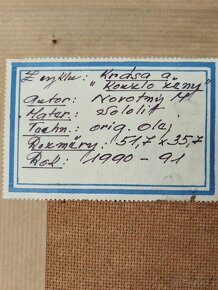 Z cyklu: Krása a
"Kouzlo ženy"
Autor: Novotný M
Mater: Sololit
Techn: orig. olej
Rozměry: 51,7 x 35,7
Rok: 1990 - 91